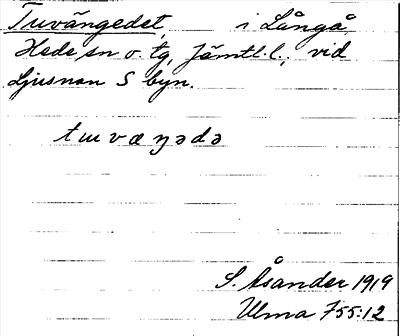 Tuvängedet, i Långå,
Hede sn o. tg, Jämtl. l., vid
Ljusnan S byn.
tɯvæŋədə
S. Åsander 1919
Ulma 755:12